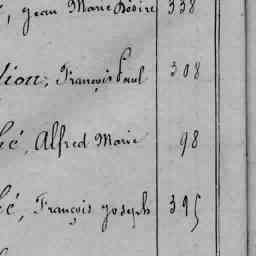 Jean Marie Désiré 338
lion, François Paul 308
lé, Alfred Marie 98
lé, François Joseph 395